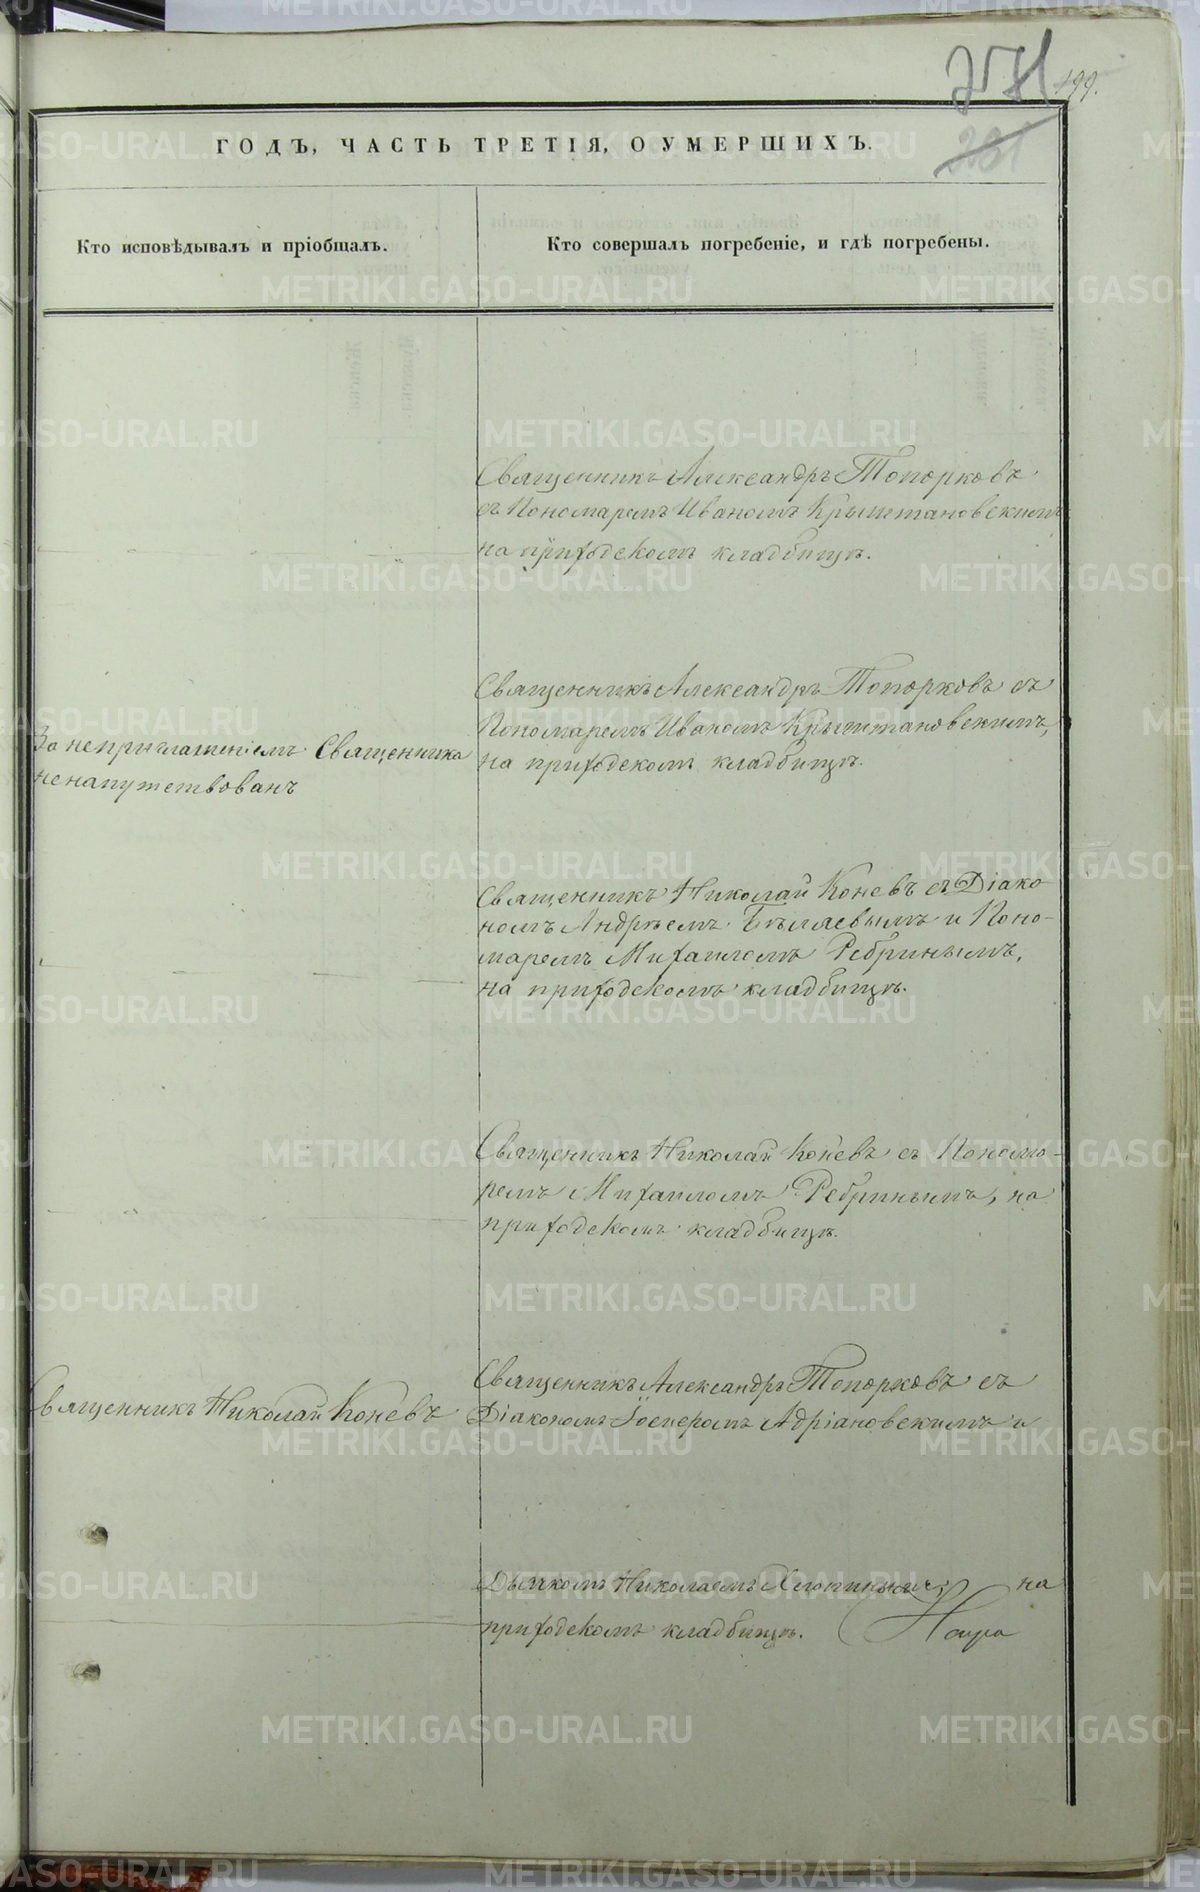 271
199.
281
ГОДЪ, ЧАСТЬ ТРЕТІЯ, О УМЕРШИХЪ.
Кто исповѣдывалъ и пріобщалъ.
Кто совершалъ погребеніе, и гдѣ погребены.
Священникъ Александръ Топорковъ
съ Пономаремъ Иваномъ Крыштановскимъ
на приходскомъ кладбищѣ.
Священникъ Александръ Топорковъ съ
Пономаремъ Иваномъ Крыштановскимъ,
на приходскомъ кладбищѣ.
За неприглашеніемъ Священника
ненапутствованъ
Священникъ Николай Коневъ съ Діако
номъ Андрѣемъ Бѣляевымъ и Поно-
маремъ Михаиломъ Ребринымъ,
на приходскомъ кладбищѣ.
Священникъ Николай Коневъ съ Понома-
ремъ Михаиломъ Ребринымъ, на
приходскомъ кладбищѣ.
Священникъ Николай Коневъ
Священникъ Александръ Топорковъ съ
Діакономъ Іосифомъ Адріановскимъ и
Дьячкомъ Николаемъ на
приходскомъ кладбищѣ.
METRIKI.GASO-URAL.RU